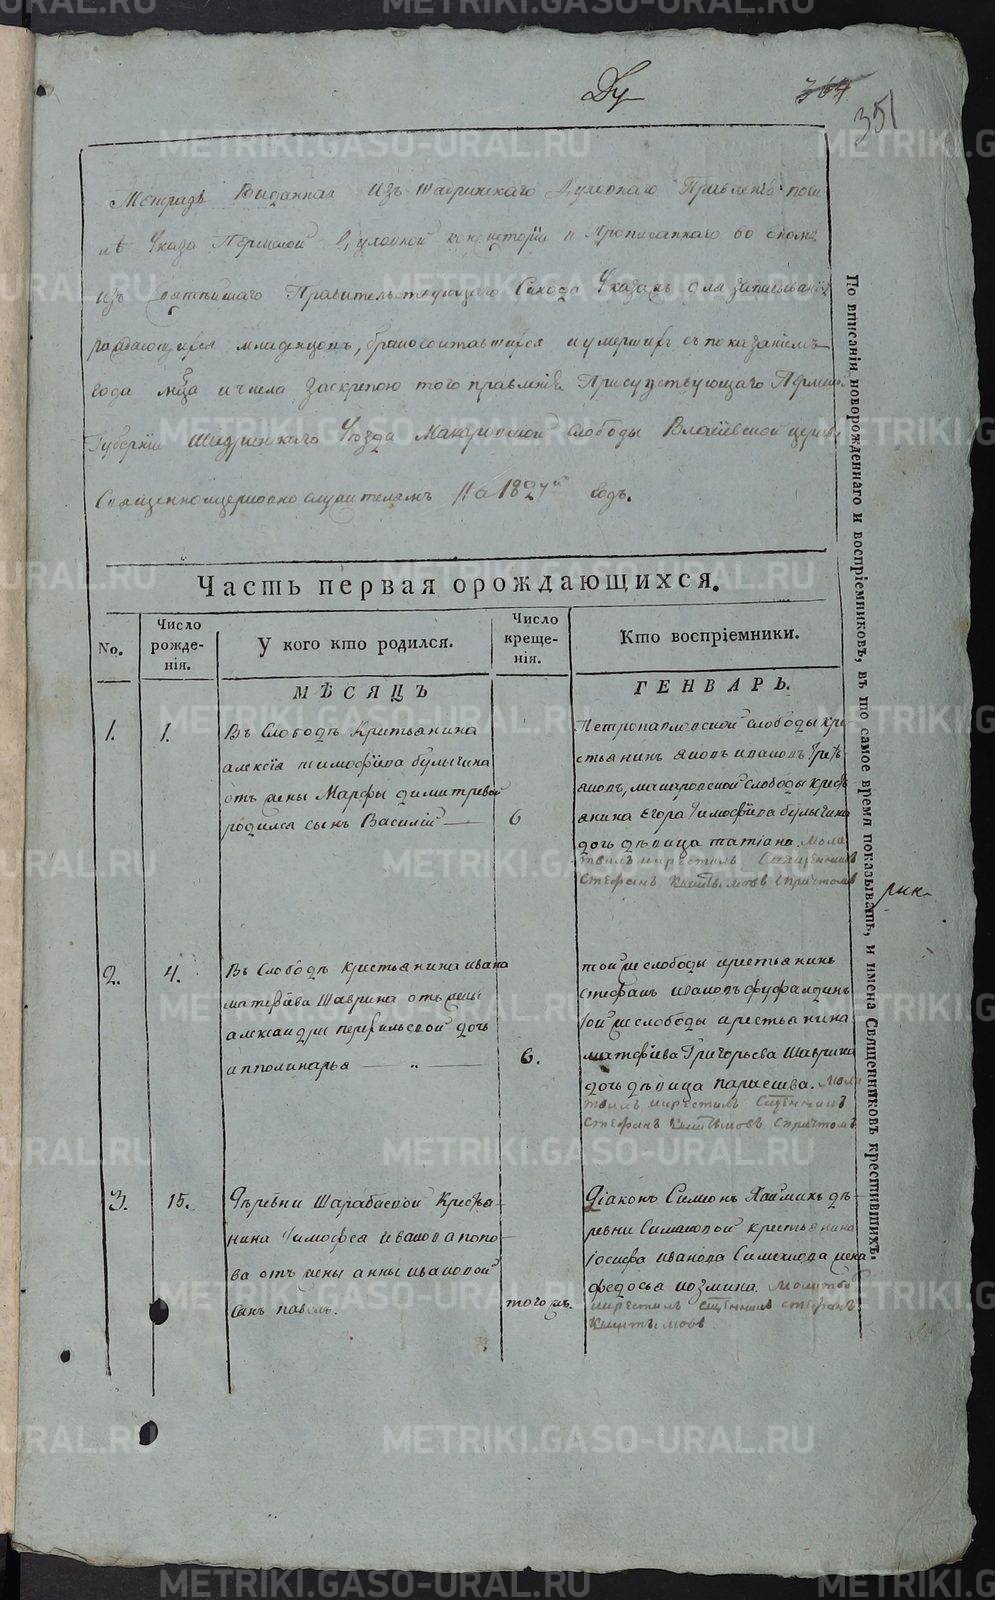 METRIKI.GASO-URAL.RU
Ду
364.
351
Тетрадь Выданная Изъ Шадринскаго Духовнаго Правленія по си
лѣ Указа Пермской Духовной консисторіи и Прописаннаго во ономъ
изъ Святѣйшаго Правительствующаго Сѵнода Указа для записыванія
раждающихся младенцовъ, бракосочитавшихся и умершихъ съ показаніемъ
года мца и числа Заскрепою того правленія Присутствующаго Пермской
Губерніи Шадринскаго Уезда Макаровской слободы церкви
Священноцерковно служителямъ На 1827й годъ.
Часть первая орождающихся.
No.
Число рожденія.
У кого кто родился.
Число крещенія.
Кто воспріемники.
МѢСЯЦЪ
ГЕНВАРЬ.
1.
1.
Въ Слободѣ Кристьянина
алексѣя тимофѣева булычева
отъ жены Марфы димитревой
родился сынъ Василій
6
Петропавловской слободы кре-
стьянинъ яковъ ивановъ
яковъ, макаровской слободы крестья
янина Егора Тимофѣева булычева
дочь дѣвица татіана. Моли
твилъ икрестилъ Священникъ
Стефанъ спричтомъ
2.
4.
Въ Слободѣ кристьянина ивана
матвѣева Шаврина отъ жены
александры дочь
апполинарья
6.
той же слободы крестьянинъ
стефанъ ивановъ
той же слободы крестьянина
матвѣева Григорьева Шаврина
дочь дѣвица параскева. Моли
твилъ икрестилъ Священникъ
Стефанъ спричтомъ
3.
15.
Деревни Шарабаевой Крестья-
нина Тимофея иванова попо-
ва отъ жены анны ивановой
Сынъ павелъ.
тогожъ.
Діаконъ Симонъ де-
ревни Симаковой крестьянина
Іосифа иванова Симакова жена
федосья козмина. молитвилъ
икрестилъ Священникъ стефанъ
По вписаніи новорожденнаго и воспріемниковъ, въ то самое время показывать, и имена Священниковъ крестившихъ.